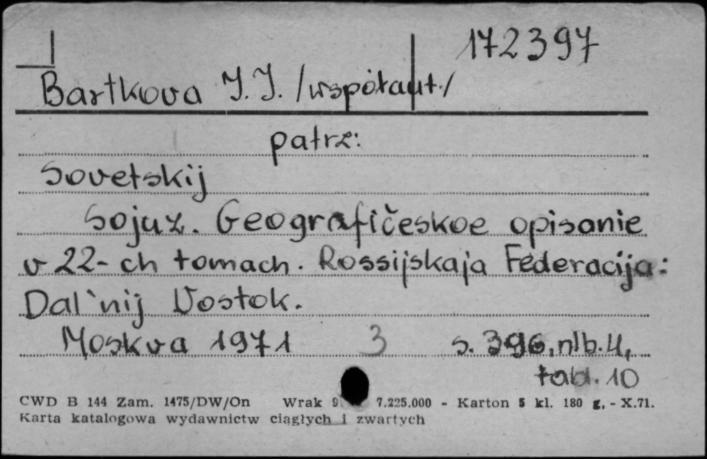 172397
Bartkova I. I. /współaut./
patrz:
Sovetskij
Sojuz. Geografičeskoe opisanie
v 22-ch tomach. Rossijskaja Federacija:
Dal'nij Vostok.
Moskva 1971 3 s. 396, nlb. 4,
tabl. 10
CWD B 144 Zam. 1475/DW/On Wrak 7.225.000 - Karton 5 kl. 180 g, - X.71.
Karta katalogowa wydawnictw ciągłych i zwartych